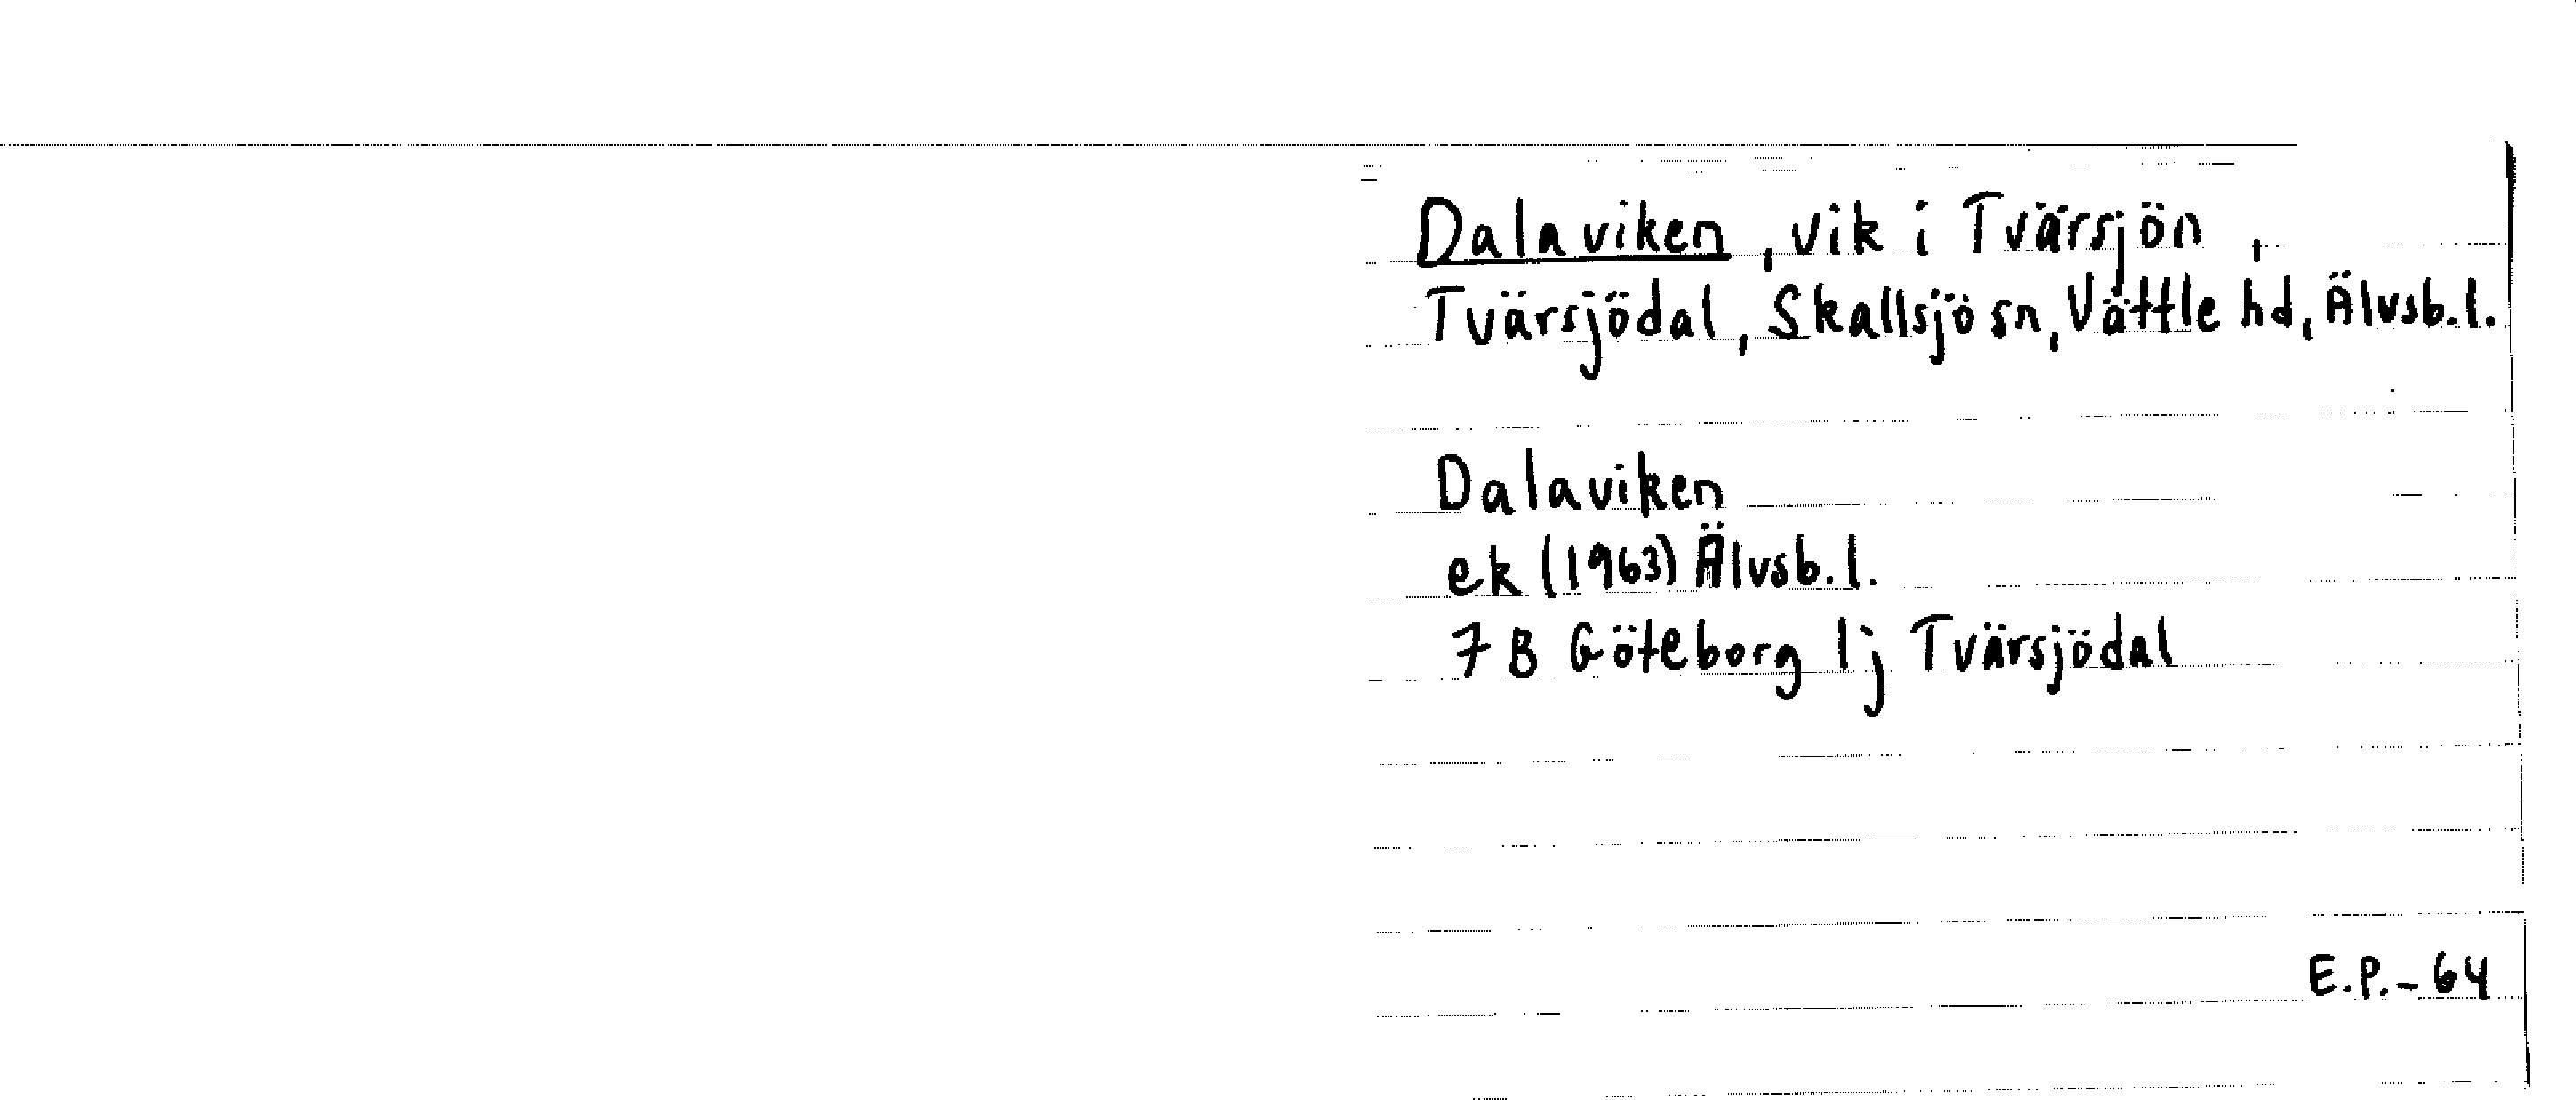 Dalaviken, vik i Tvärsjön,
Tvärsjödal, Skallsjö sn, Vättle hd, Älvsb. l.
Dalaviken
ek (1963) Älvsb. l.
7 B Göteborg 1j Tvärsjödal
E.P.-64